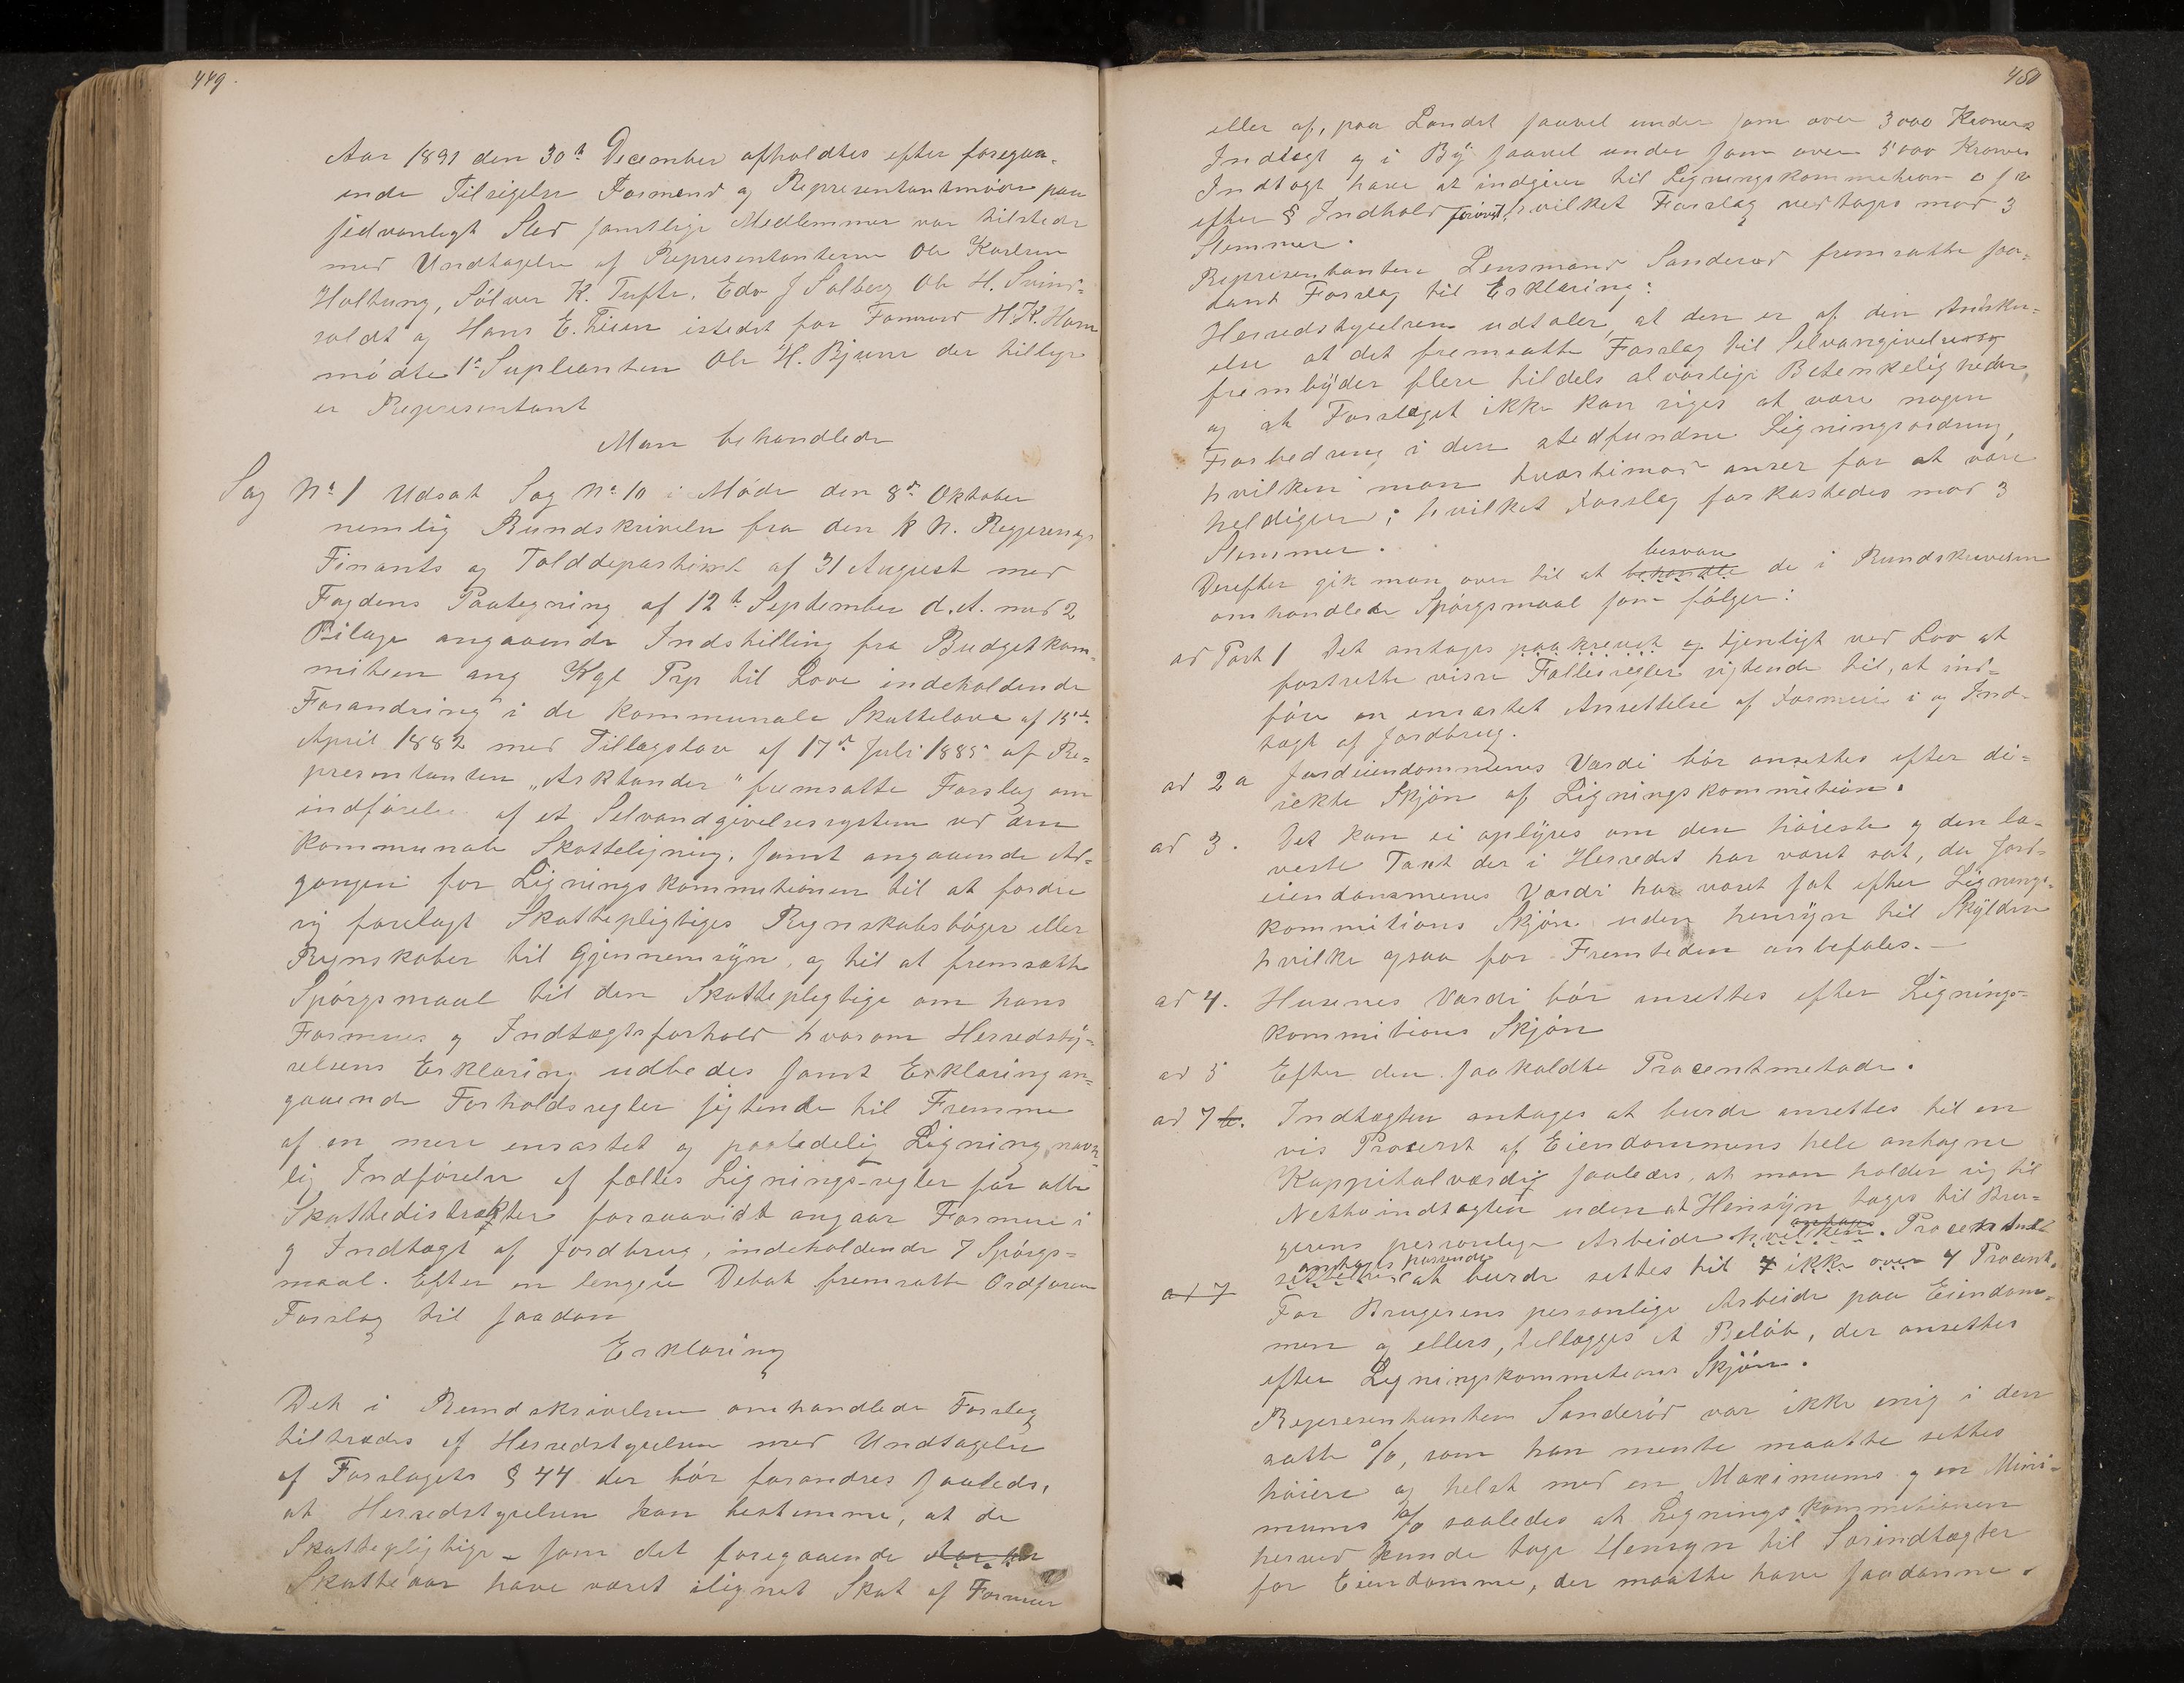 449.
Aar 1891 den 30te December afholdtes efter foregaa-
ende Tilsigelse Formend og Representantmøde paa
sedvanligt Sted samtlige Medlemmer var tilstede
med Undtagelse af Representanterne Ole Karlsen
Holtung, Sølver K. Tufte, Edv J Solberg Ole H. Svins-
holdt og Hans E. Lien istedet for Formand H. K. Horn
mødte 1ste Supleanten Ole H. Bjune der tillige
er Representant
Man behandlede
Sag No 1 Udsat Sag No 10 i Møde den 8de Oktober
nemlig Rundskrivelse fra den k N. Regjerings
Finants og Tolddepartiment af 31 August med
Fogdens Paategning af 12te September d. A. med 2
Bilage angaaende Indstilling fra Budgetkom-
miteen ang Kgl Prp til Love indeholdende
Forandring i de kommunale Skattelove af 15de
April 1882 med Tillægslov af 17de Juli 1885 af Re-
presentanten „Arktander" fremsatte Forslag om
indførelse af et Selvandgivelsessystem ved den
kommunale Skatteligning, samt angaaende Ad-
gangen for Ligningskommitionen til at fordre
sig forelagt Skattepligtiges Regnskabsbøger eller
Regnskaber til Gjennemsyn, og til at fremsætte
Spørgsmaal til den Skattepligtige om hans
Formues og Indtægtsforhold hvorom Herredsty-
relsens Erklæring udbedes samt Erklæring an-
gaaende Forholdsregler sigtende til Fremme
af en mere ensartet og paalidelig Ligning navn-
lig Indførelse af fælles Lignings-regler for alle
Skattedistrækter forsaavidt angaar Formue i
og Indtægt af Jordbrug, indeholdende 7 Spørgs-
maal. Efter en lengere Debat fremsatte Ordføren
Forslag til saadan
Erklæring
Det i Rundskrivelsen omhandlede Forslag
tiltrædes af Herredstyrelsen med Undtagelse
af Forslagets § 44 der bør forandres saaleds,
at Herredstyrelsen kan bestemme, at de
Skattepligtige – som det foregaaende Aar er
Skatteaar have været ilignet Skat af Formue
450
eller af, paa Landet saavel under som over 3000 Kroners
Indtægt og i By saavel under som over 5000 Kroners
Indtægt have at indgive til Ligningskommitionen o s v
efter § Indhold forøvrigt, hvilket Forslag vedtoges mod 3
Stemmer.
Representanten Lensmand Sanderød fremsatte saa-
dant Forslag til Erklæring:
Herredstyrelsen udtaler, at den er af den Anskuelse
else at det fremsatte Forslag til Selvangivelse og
frembyder flere tildels alvorlige Betenkeligheder,
og at Forslaget ikke kan siges at være nogen
Forbedring i den stedfundne Ligningsordning,
hvilken man tvertimod anser for at være
heldigere; hvilket Forslag forkastedes mod 3
Stemmer.
besvare
Derefter gik man over til at behandle de i Rundskrivelsen
omhandlede Spørgsmaal som følger:
ad Post 1 Det antages paakrevet og tjenligt ved Lov at
fastsette visse Fællesregler sigtende til, at ind-
føre en ensartet Ansettelse af Formue i og Ind-
tægt af Jordbrug.
ad 2a Jordeiendommenes Værdi bør ansettes efter di-
rekte Skjøn af Ligningskommitionen.
ad 3. Det kan ei oplyses om den høieste og den la-
veste Taxt der i Herredet har været sat, da Jord-
eiendommenes Værdi har været sat efter Lignings-
kommitions Skjøn uden hensyn til Skylden
hvilke ogsaa for Fremtiden anbefales. –
ad 4. Husenes Værdi bør ansettes efter Lignings-
kommitions Skjøn
ad 5 Efter den saakaldte Procentmetode.
ad 7 b. Indtægten antages at burde ansettes til en
vis Procent af Eiendommens hele antagne
Kappitalværdig saaledes, at man holder sig til
Nettoindtægten uden at Hensyn tages til Bru-
gerens personlige Arbeide hvilken. Procentand
antages
ad 7 settelse at burde settes til 4 ikke over 4 Procent.
For Brugerens personlige Arbeide paa Eiendom-
men og ellers, tillægges et Beløb, der ansettes
efter Ligningskommitions Skjøn.
Representanten Sanderød var ikke enig i den
satte %, som han mente maatte settes
høiere og helst med en Maximums og en Mini-
mums % saaledes at Ligningskommitionen
herved kunde tage Hensyn til Særindtægter
for Eiendomme, der maatte have saadanne.